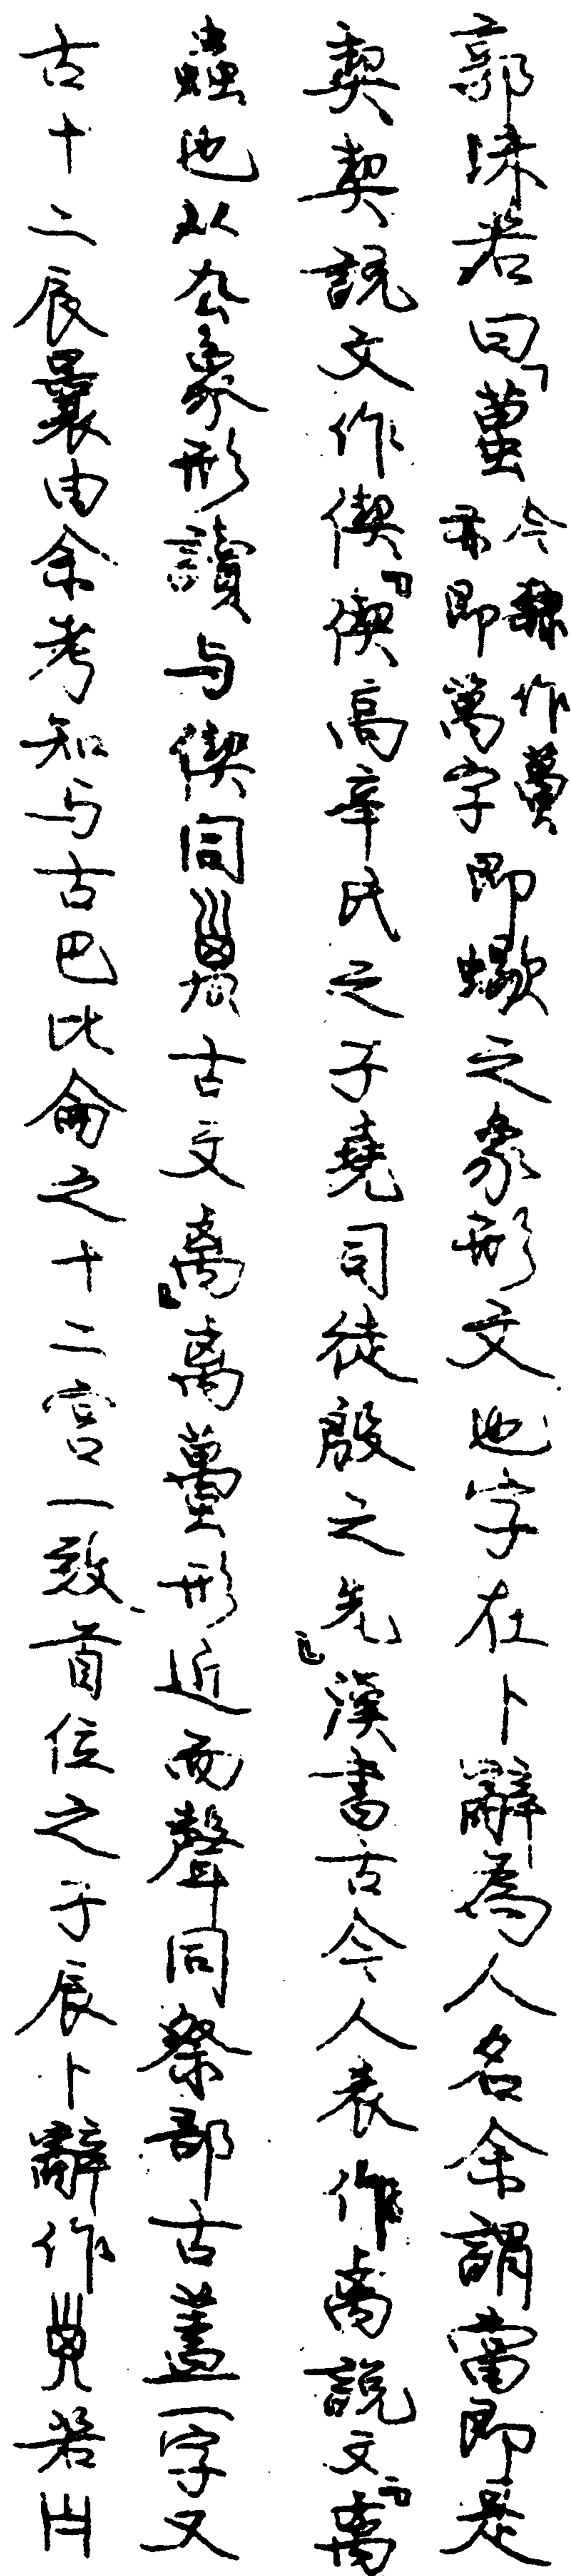 郭沫若曰「蠆今隸作蠆亦即萬字即蠍之象形文也字在卜辭為人名余謂當即是
契契説文作偰「偰高辛氏之子堯司徒殷之先」漢書古今人表作卨說文「卨
蟲也从厹象形讀与偰同古文卨」卨蠆形近而聲同祭部古蓋一字又
古十二辰曩由余考知与古巴比侖之十二宫一致首位之子辰卜辭作若